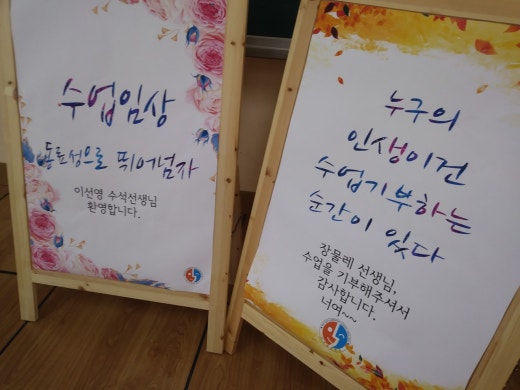 수업임상
동료성으로 뛰어넘자
이선영 수석선생님
환영합니다.
누구의
인생이건
수업기부하는
순간이 있다
장물레 선생님,
수업을 기부해주셔서
감사합니다.
너여~~